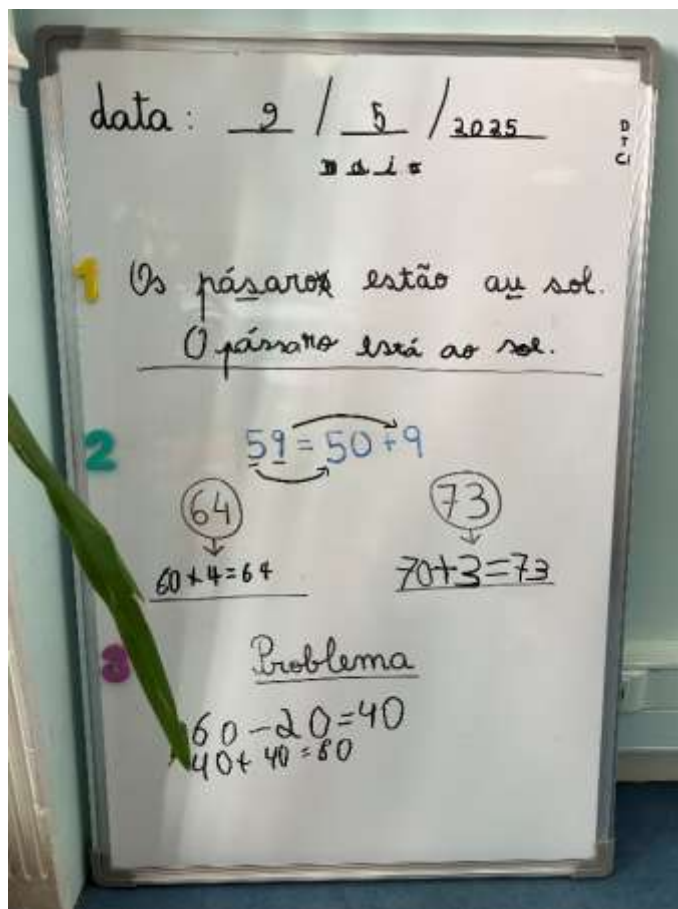 data: 9 / 5 / 2025
D
T
C
1 Os pásaros estão au sol.
O pássaro está ao sol.
2 59 = 50 + 9
64
73
60 + 4 = 64
70 + 3 = 73
3 Problema
60 - 20 = 40
40 + 40 = 80